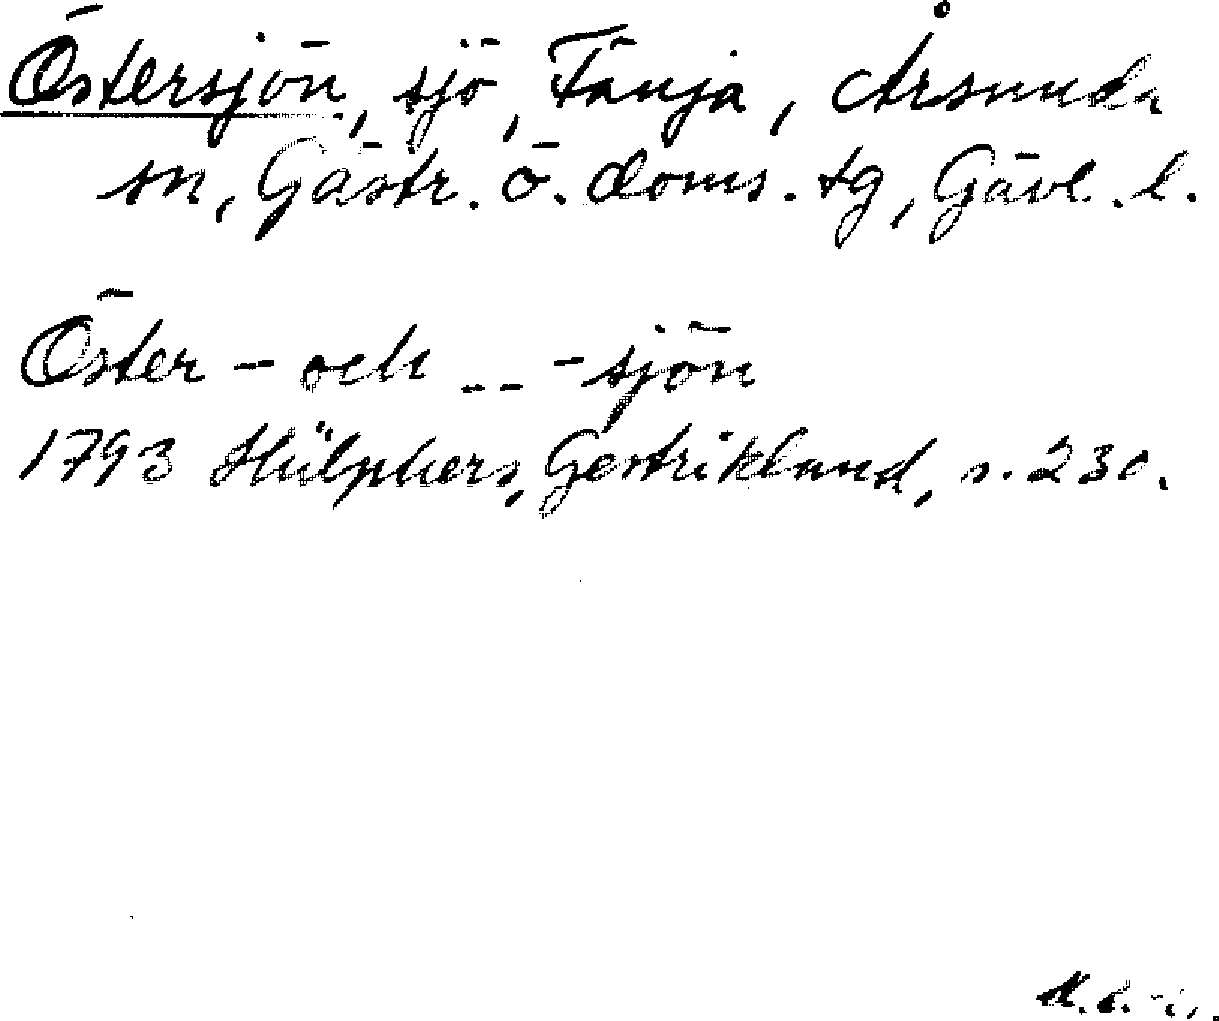 Östersjön, sjö, Fänja, Årsunda
sn, Gästr. ö. doms. tg, Gävl. l.
Öster- och -- -sjön
1793 Hülphers, Gestrikland, s. 230.